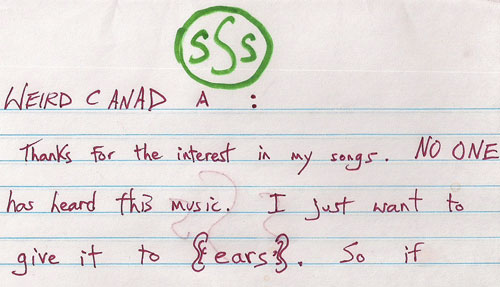 sSs
WEIRD CANAD A :
Thanks for the interest in my songs. NO ONE
has heard this music. I just want to
give it to {ears}. So if